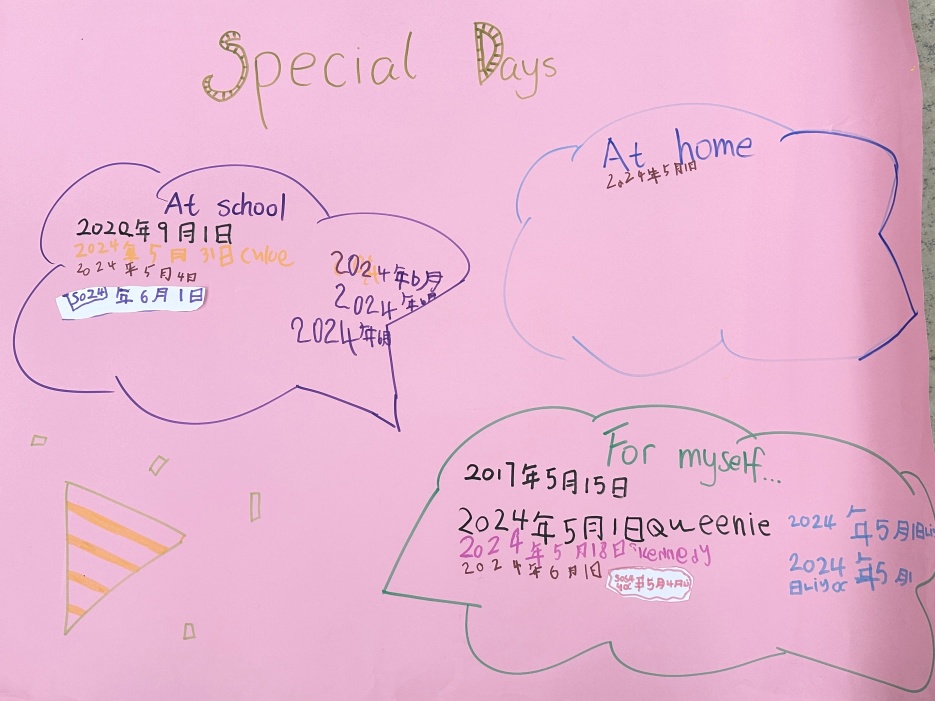 Special Days
At school
2022年9月1日
2024年5月31日Chloe
2024年5月4日
年6月1日
2024年6月
2024年6月
2024年6月
At home
2024年5月1日
For myself...
2017年5月15日
2024年5月1日Queenie
2024年5月18日kennedy
2024年6月1日
年5月4月
2024年5月1日
2024年5月1
日